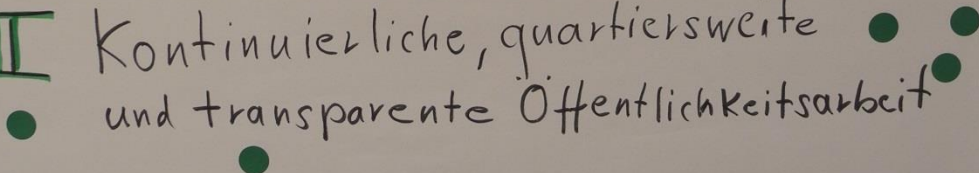 I Kontinuierliche, quartiersweite
und transparente Öffentlichkeitsarbeit